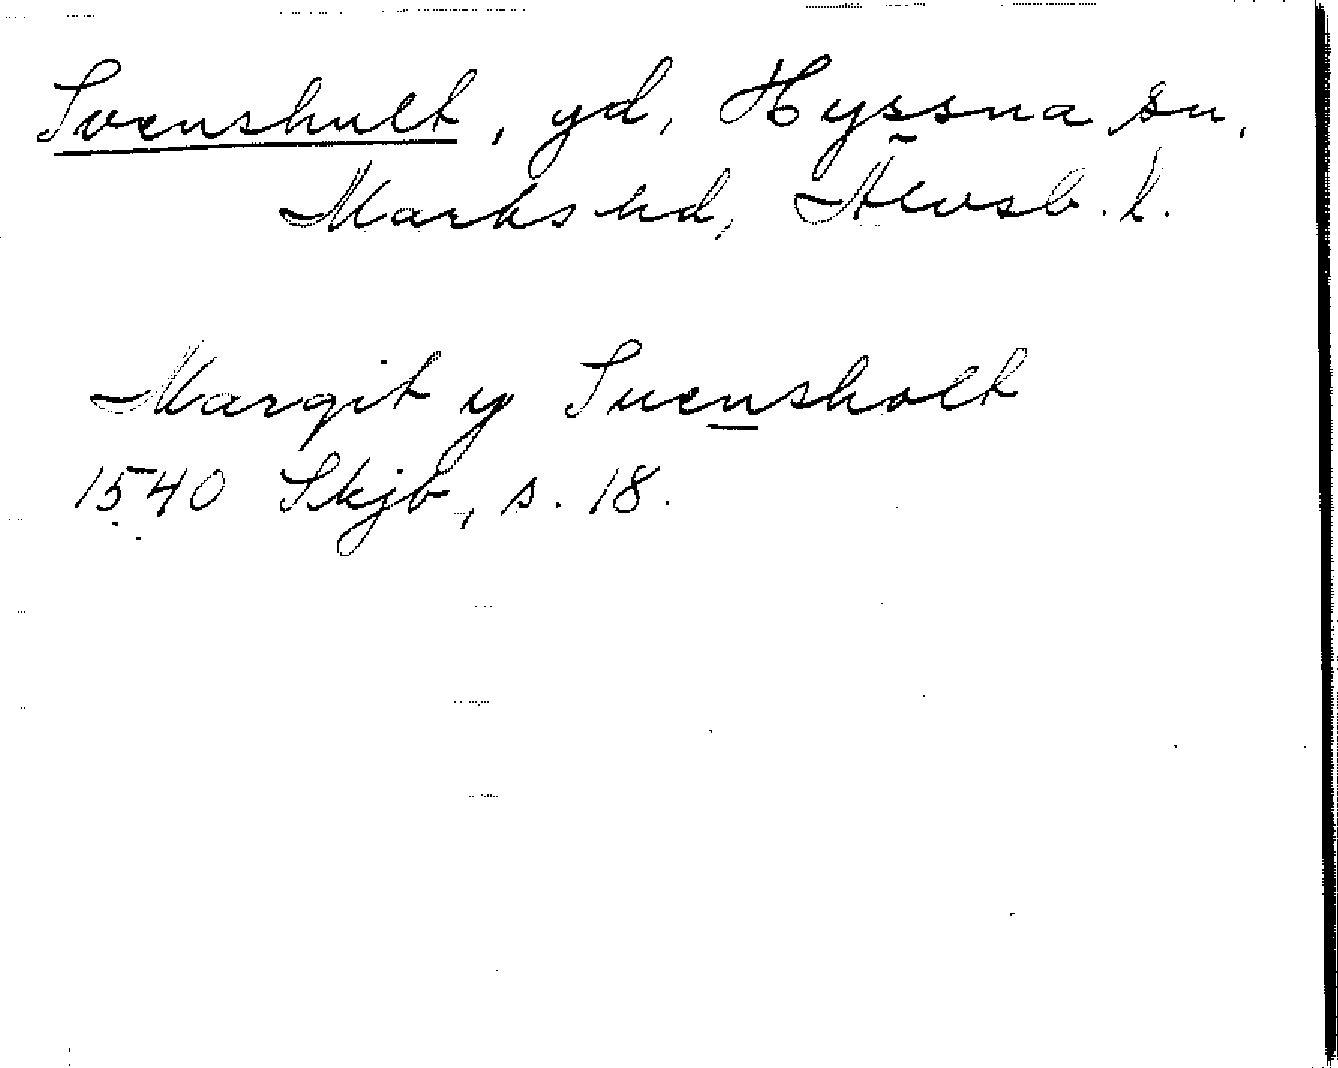 Svenshult, gd, Hyssna sn,
Marks hd, Älvsb. l.
Margit y Suensholt
1540 Skjb, s. 18.